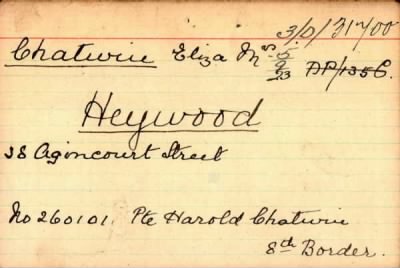 3/D/31700
Chatwin Eliza Mrs.
DP/1356.
Heywood
38 Agincourt Street
No 260101. Pte Harold Chatwin
8th Border.